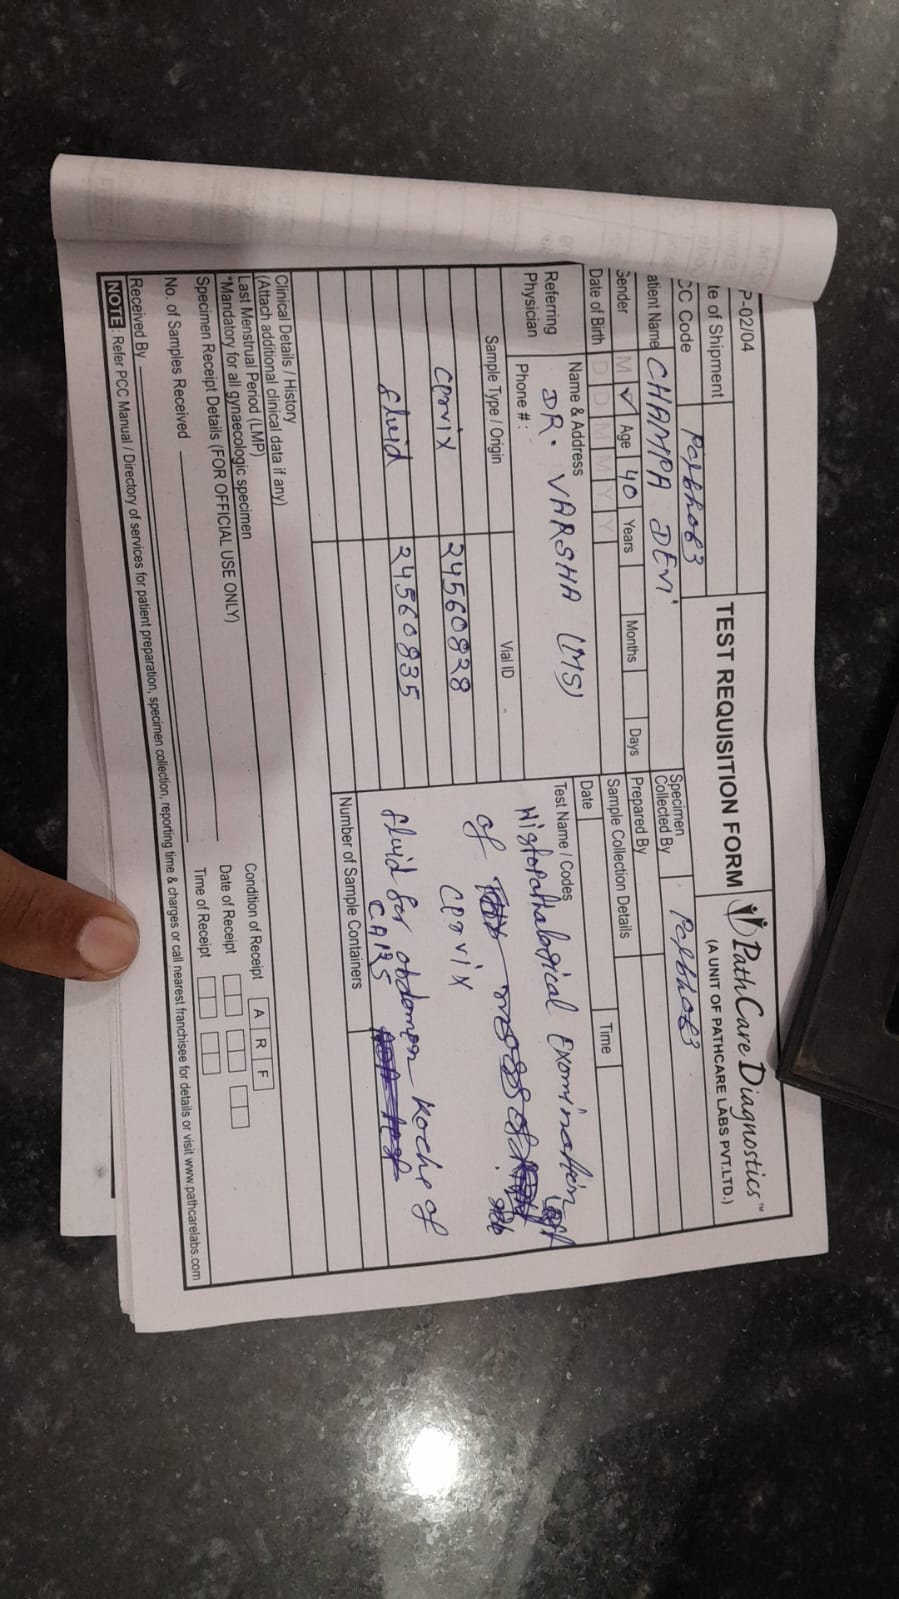 P-02/04
te of Shipment
CC Code
TEST REQUISITION FORM
PathCare Diagnostics™
(A UNIT OF PATHCARE LABS PVT.LTD.)
atient Name CHAMPA DEVI
Specimen Collected By
Gender M ✓ Age 40 Years Months Days
Prepared By
Date of Birth D D M M Y Y
Sample Collection Details
Date Time
Referring Physician
Name & Address
DR. VARSHA (MS)
Phone #:
Test Name / Codes
Histopathalogical Examination
of
mass of
Cervix
fluid for abdomen Koche of
CA125
Sample Type / Origin Vial ID
Cervix 24560828
fluid 24560835
Number of Sample Containers
Clinical Details / History
(Attach additional clinical data if any)
Last Menstrual Period (LMP)
*Mandatory for all gynaecologic specimen
Specimen Receipt Details (FOR OFFICIAL USE ONLY)
No. of Samples Received
Condition of Receipt A R F
Date of Receipt
Time of Receipt
Received By
NOTE : Refer PCC Manual / Directory of services for patient preparation, specimen collection, reporting time & charges or call nearest franchisee for details or visit www.pathcarelabs.com